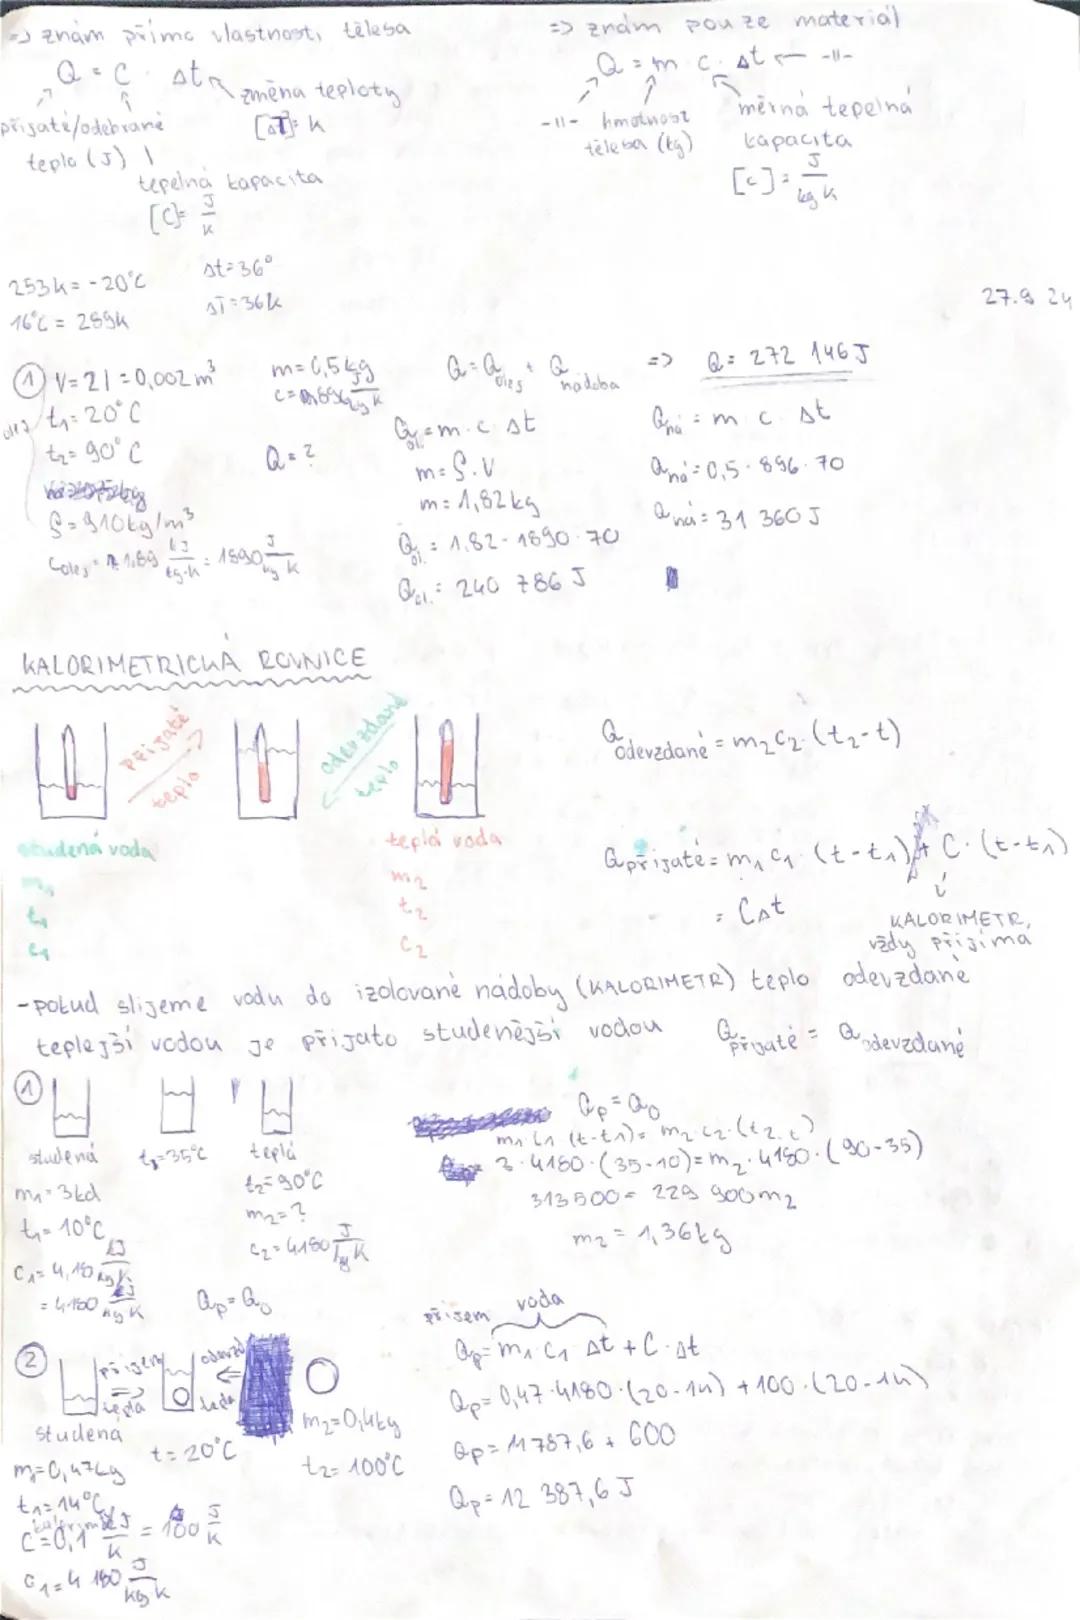 => znám přímo vlastnosti tělesa
Q = C · Δt
změna teploty
[ΔT]= K
přijaté/odebrané
teplo (J)
tepelná kapacita
[C]= J/K
=> znám pouze materiál
Q = m · c · Δt ← -11-
-11- hmotnost
tělesa (kg)
měrná tepelná
kapacita
[c] = J/kg K
253K = -20°C
16°C = 289K
Δt=36°
ΔT=36K
27.9 24
① V=2l=0,002m³
olej t₁=20°C
t₂=90°C
ρ=910kg/m³
Colej = 1,89 kJ/kg·K = 1890 J/kg K
m=0,5kg
c=896 J/kg K
Q=?
Q=Qolej + Qnádoba
Qol.=m·c·Δt
m=ρ·V
m=1,82kg
Qol.=1,82·1890·70
Qol.=240 786 J
=> Q=272 146J
Qná=m·c·Δt
Qná=0,5·896·70
Qná=31 360J
KALORIMETRICKÁ ROVNICE
přijaté
teplo
odevzdané
teplo
studená voda
m₁
t₁
c₁
teplá voda
m₂
t₂
c₂
Qodevzdané = m₂c₂·(t₂-t)
Qpřijaté = m₁c₁·(t-t₁) + C·(t-t₁)
= CΔt
KALORIMETR,
vždy přijímá
-pokud slijeme vodu do izolované nádoby (KALORIMETR) teplo odevzdané
teplejší vodou je přijato studenější vodou
Qpřijaté = Qodevzdané
①
studená
m₁=3kg
t₁=10°C
c₁=4,18 kJ/kg K
=4180 J/kg K
t=35°C
teplá
t₂=90°C
m₂=?
c₂=4180 J/kg K
Qp=Qo
Qp=Qo
m₁c₁(t-t₁)=m₂·c₂·(t₂-t)
3·4180·(35-10)=m₂·4180·(90-35)
313500=229 900m₂
m₂=1,36kg
②
příjem
tepla
odevzd
studená
m₁=0,47kg
t₁=14°C
kalorim
C=0,1 kJ/K = 100 J/K
c₁=4 180 J/kg K
t=20°C
m₂=0,4kg
t₂=100°C
příjem voda
Qp=m₁·c₁·Δt+C·Δt
Qp=0,47·4180·(20-14)+100·(20-14)
Qp=11787,6+600
Qp=12 387,6 J